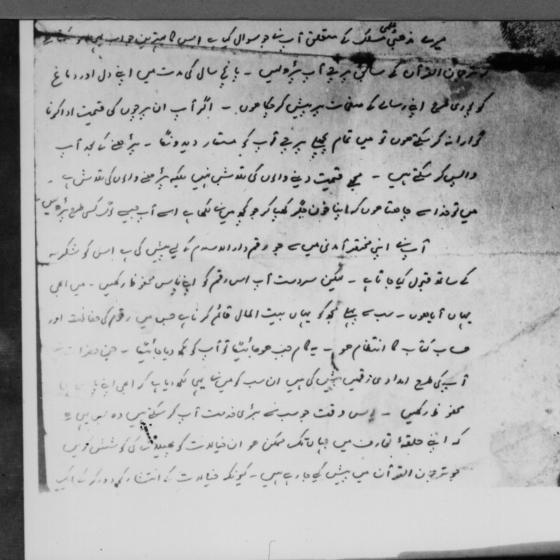 میرے مذہبی علمی مسلک کے متعلق آپ نے جو سوال کیا ہے اس کا بہترین جواب یہی ہو سکتا ہے
ترجمان القرآن کے سابق پرچے آپ پڑھ لیں ۔ پانچ سال کی مدت میں اپنے دل اور دماغ
کو پوری طرح اپنے رسالے کے صفحات پر پیش کر چکا ہوں ۔ اگر آپ ان پرچوں کی قیمت ادا کرنا
گوارا نہ کر سکتے ہوں تو میں تمام پچھلے پرچے آپ کو مستعار دیدونگا ۔ پڑھنے کے بعد آپ
واپس کر سکتے ہیں ۔ مجھے قیمت دینے والوں کی تلاش نہیں بلکہ پڑھنے والوں کی تلاش ہے ۔
میں تو خدا سے چاہتا ہوں کہ اپنا خون جگر کھپا کر جو کچھ میں نے لکھا ہے اسے آپ جیسے لوگ کسی طرح پڑھ لیں
آپ نے اپنی مختصر آمدنی میں سے جو رقم دارالاسلام کے لیے پیش کی ہے اس کو شکریہ
کے ساتھ قبول کیا جاتا ہے ۔ لیکن سردست آپ اس رقم کو اپنے پاس محفوظ رکھیں ۔ میں ابھی
یہاں آیا ہوں ۔ سب سے پہلے مجھ کو یہاں بیت المال قائم کرنا ہے جس میں رقوم کی حفاظت اور
حساب کتاب کا انتظام ہو ۔ یہ کام جب ہو جائیگا تو آپ کو لکھ دیا جائیگا ۔ جن حضرات نے
آپ کی طرح امدادی رقمیں پیش کی ہیں ان سب کو میں نے یہی لکھ دیا ہے کہ ابھی اپنے پاس
محفوظ رکھیں ۔ اس وقت جو سب سے بڑی خدمت آپ کر سکتے ہیں وہ بس یہی ہے
کہ اپنے حلقۂ تعارف میں جہاں تک ممکن ہو ان خیالات کو پھیلانے کی کوشش کریں
جو ترجمان القرآن میں پیش کیے جا رہے ہیں ۔ کیونکہ خیالات کے انتشار کو دور کر کے ایک